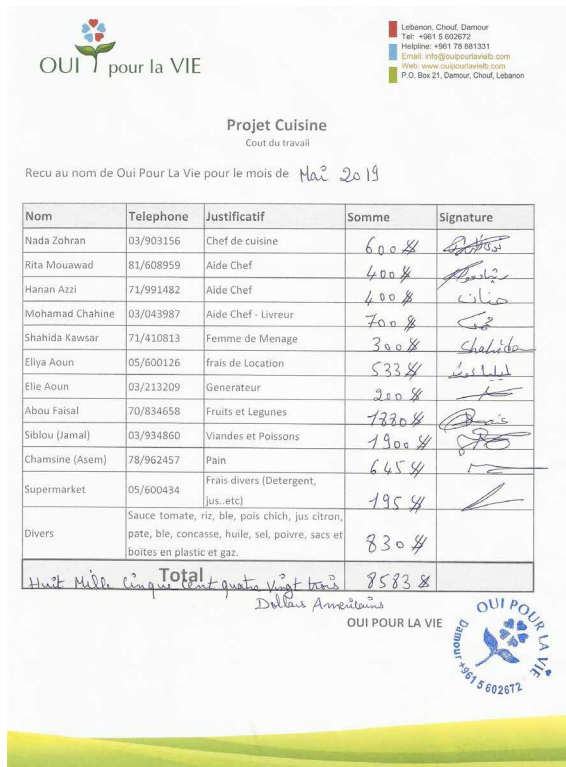 OUI pour la VIE
Lebanon, Chouf, Damour
Tel: +961 5 602672
Helpline: +961 78 881331
Email: info@ouipourlavielb.com
Web: www.ouipourlavielb.com
P.O. Box 21, Damour, Chouf, Lebanon
Projet Cuisine
Cout du travail
Recu au nom de Oui Pour La Vie pour le mois de Mai 2019
Nom Telephone Justificatif Somme Signature
Nada Zohran 03/903156 Chef de cuisine 600 $
Rita Mouawad 81/608959 Aide Chef 400 $
Hanan Azzi 71/991482 Aide Chef 400 $ حنان
Mohamad Chahine 03/043987 Aide Chef - Livreur 700 $
Shahida Kawsar 71/410813 Femme de Menage 300 $ Shahida
Eliya Aoun 05/600126 frais de Location 533 $
Elie Aoun 03/213209 Generateur 200 $
Abou Faisal 70/834658 Fruits et Legunes 1880 $
Siblou (Jamal) 03/934860 Viandes et Poissons 1900 $
Chamsine (Asem) 78/962457 Pain 645 $
Supermarket 05/600434 Frais divers (Detergent,
jus..etc) 195 $
Divers Sauce tomate, riz, ble, pois chich, jus citron,
pate, ble, concasse, huile, sel, poivre, sacs et
boites en plastic et gaz. 830 $
Total 8583 $
Huit Mille Cinque Cent quatre Vingt trois
Dollars Americains
OUI POUR LA VIE
OUI POUR LA VIE
Damour +961 5 602672